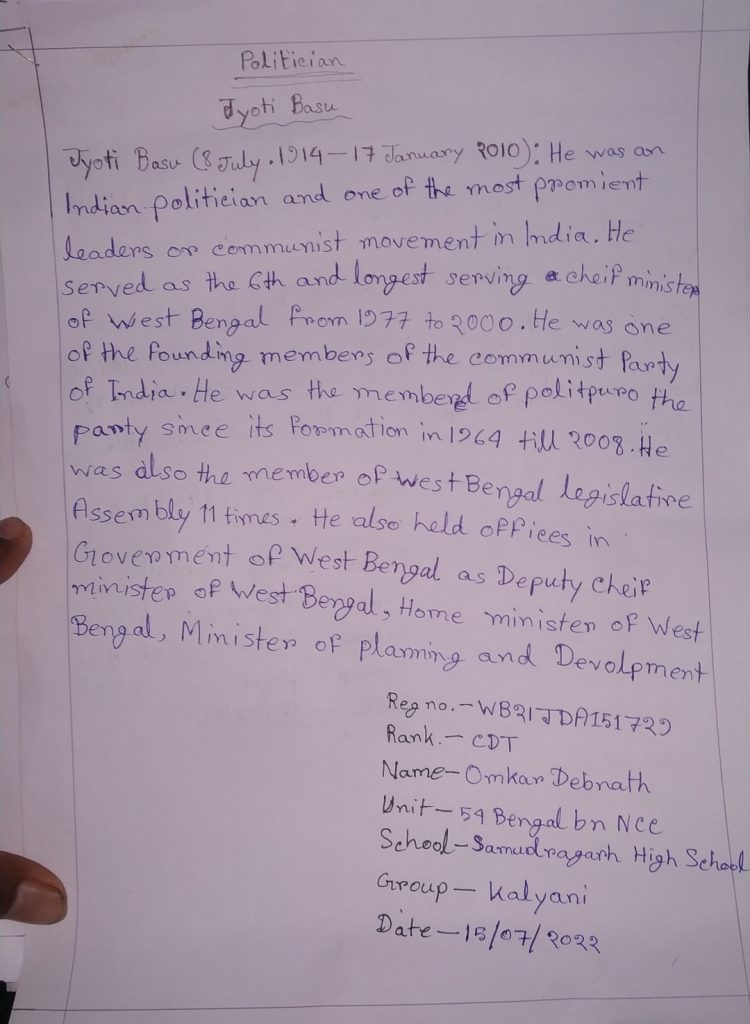 Politician
Jyoti Basu
Jyoti Basu (8 July.1914-17 January 2010): He was an
Indian politician and one of the most promient
leaders or communist movement in India. He
served as the 6th and longest serving cheif minister
of West Bengal from 1977 to 2000. He was one
of the founding members of the communist Party
of India. He was the member of politpuro the
party since its formation in 1964 till 2008. He
was also the member of West Bengal legislative
Assembly 11 times. He also held offices in
Goverment of West Bengal as Deputy cheif
minister of West Bengal, Home minister of West
Bengal, Minister of planning and Devolpment
Reg no.-WB21JDA151729
Rank.- CDT
Name- Omkar Debnath
Unit- 54 Bengal bn NCC
School-Samudragarh High School
Group- Kalyani
Date-15/07/2022